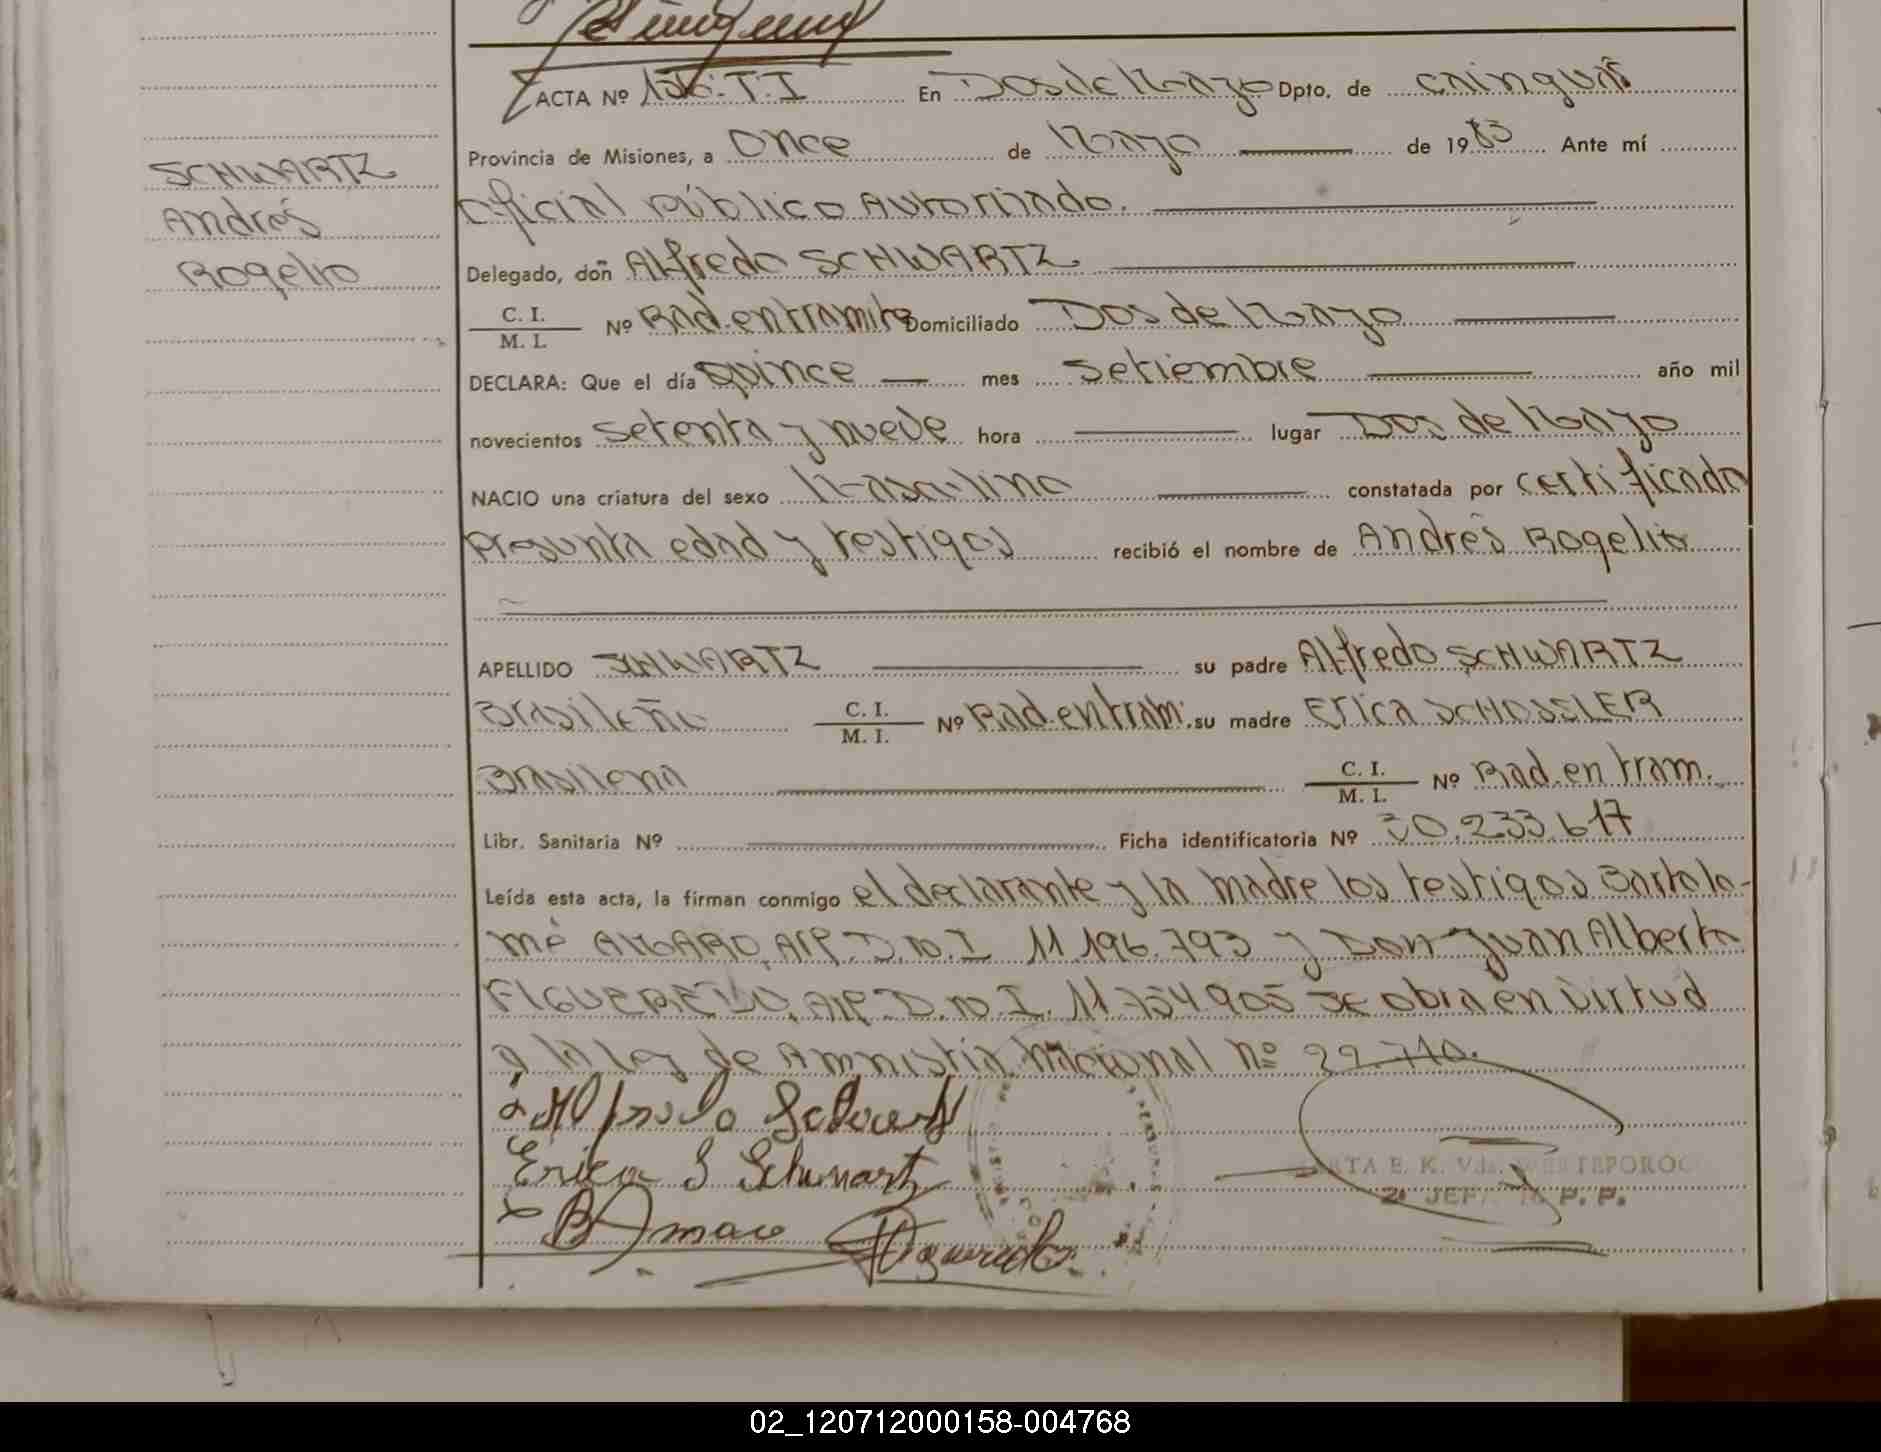 ACTA Nº 156. T. I En Dos de Mayo Dpto. de Cainguás
Provincia de Misiones, a Once de Mayo de 1983 Ante mí
SCHWARTZ
Andrés
Rogelio
Oficial Público Autorizado.
Delegado, don Alfredo SCHWARTZ
C. I.
M. I. Nº Rad. en tramite Domiciliado Dos de Mayo
DECLARA: Que el día quince mes Setiembre año mil
novecientos setenta y nueve hora lugar Dos de Mayo
NACIO una criatura del sexo Masculino constatada por certificado
presunta edad y testigos recibió el nombre de Andrés Rogelio
APELLIDO SCHWARTZ su padre Alfredo SCHWARTZ
Brasileño C. I. M. I. Nº Rad. en tram. su madre Erica SCHOSSLER
Brasilena C. I. M. I. Nº Rad. en tram.
Libr. Sanitaria Nº Ficha identificatoria Nº 30.233.617
Leída esta acta, la firman conmigo el declarante y la madre los testigos Bartolo-
mé AMARO, Arg. D.N.I 11.196.793 y Don Juan Alberto
FIGUEREDO, Arg. D.N.I. 11.754.905 se obra en virtud
a la ley de Amnistia Nacional Nº 22.710.
Erica S Schwartz
B Amaro
2º JEFA P. P.
02_120712000158-004768